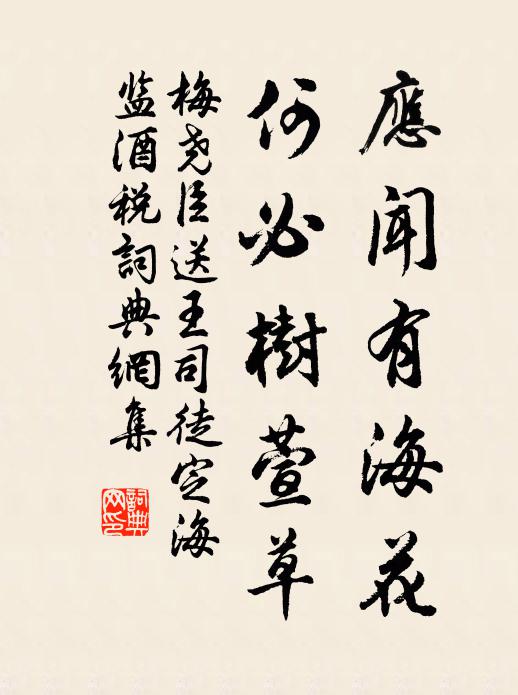 應聞有海花
何必樹萱草
梅尧臣送王司徒定海
监酒税詞典網集
詞典网印